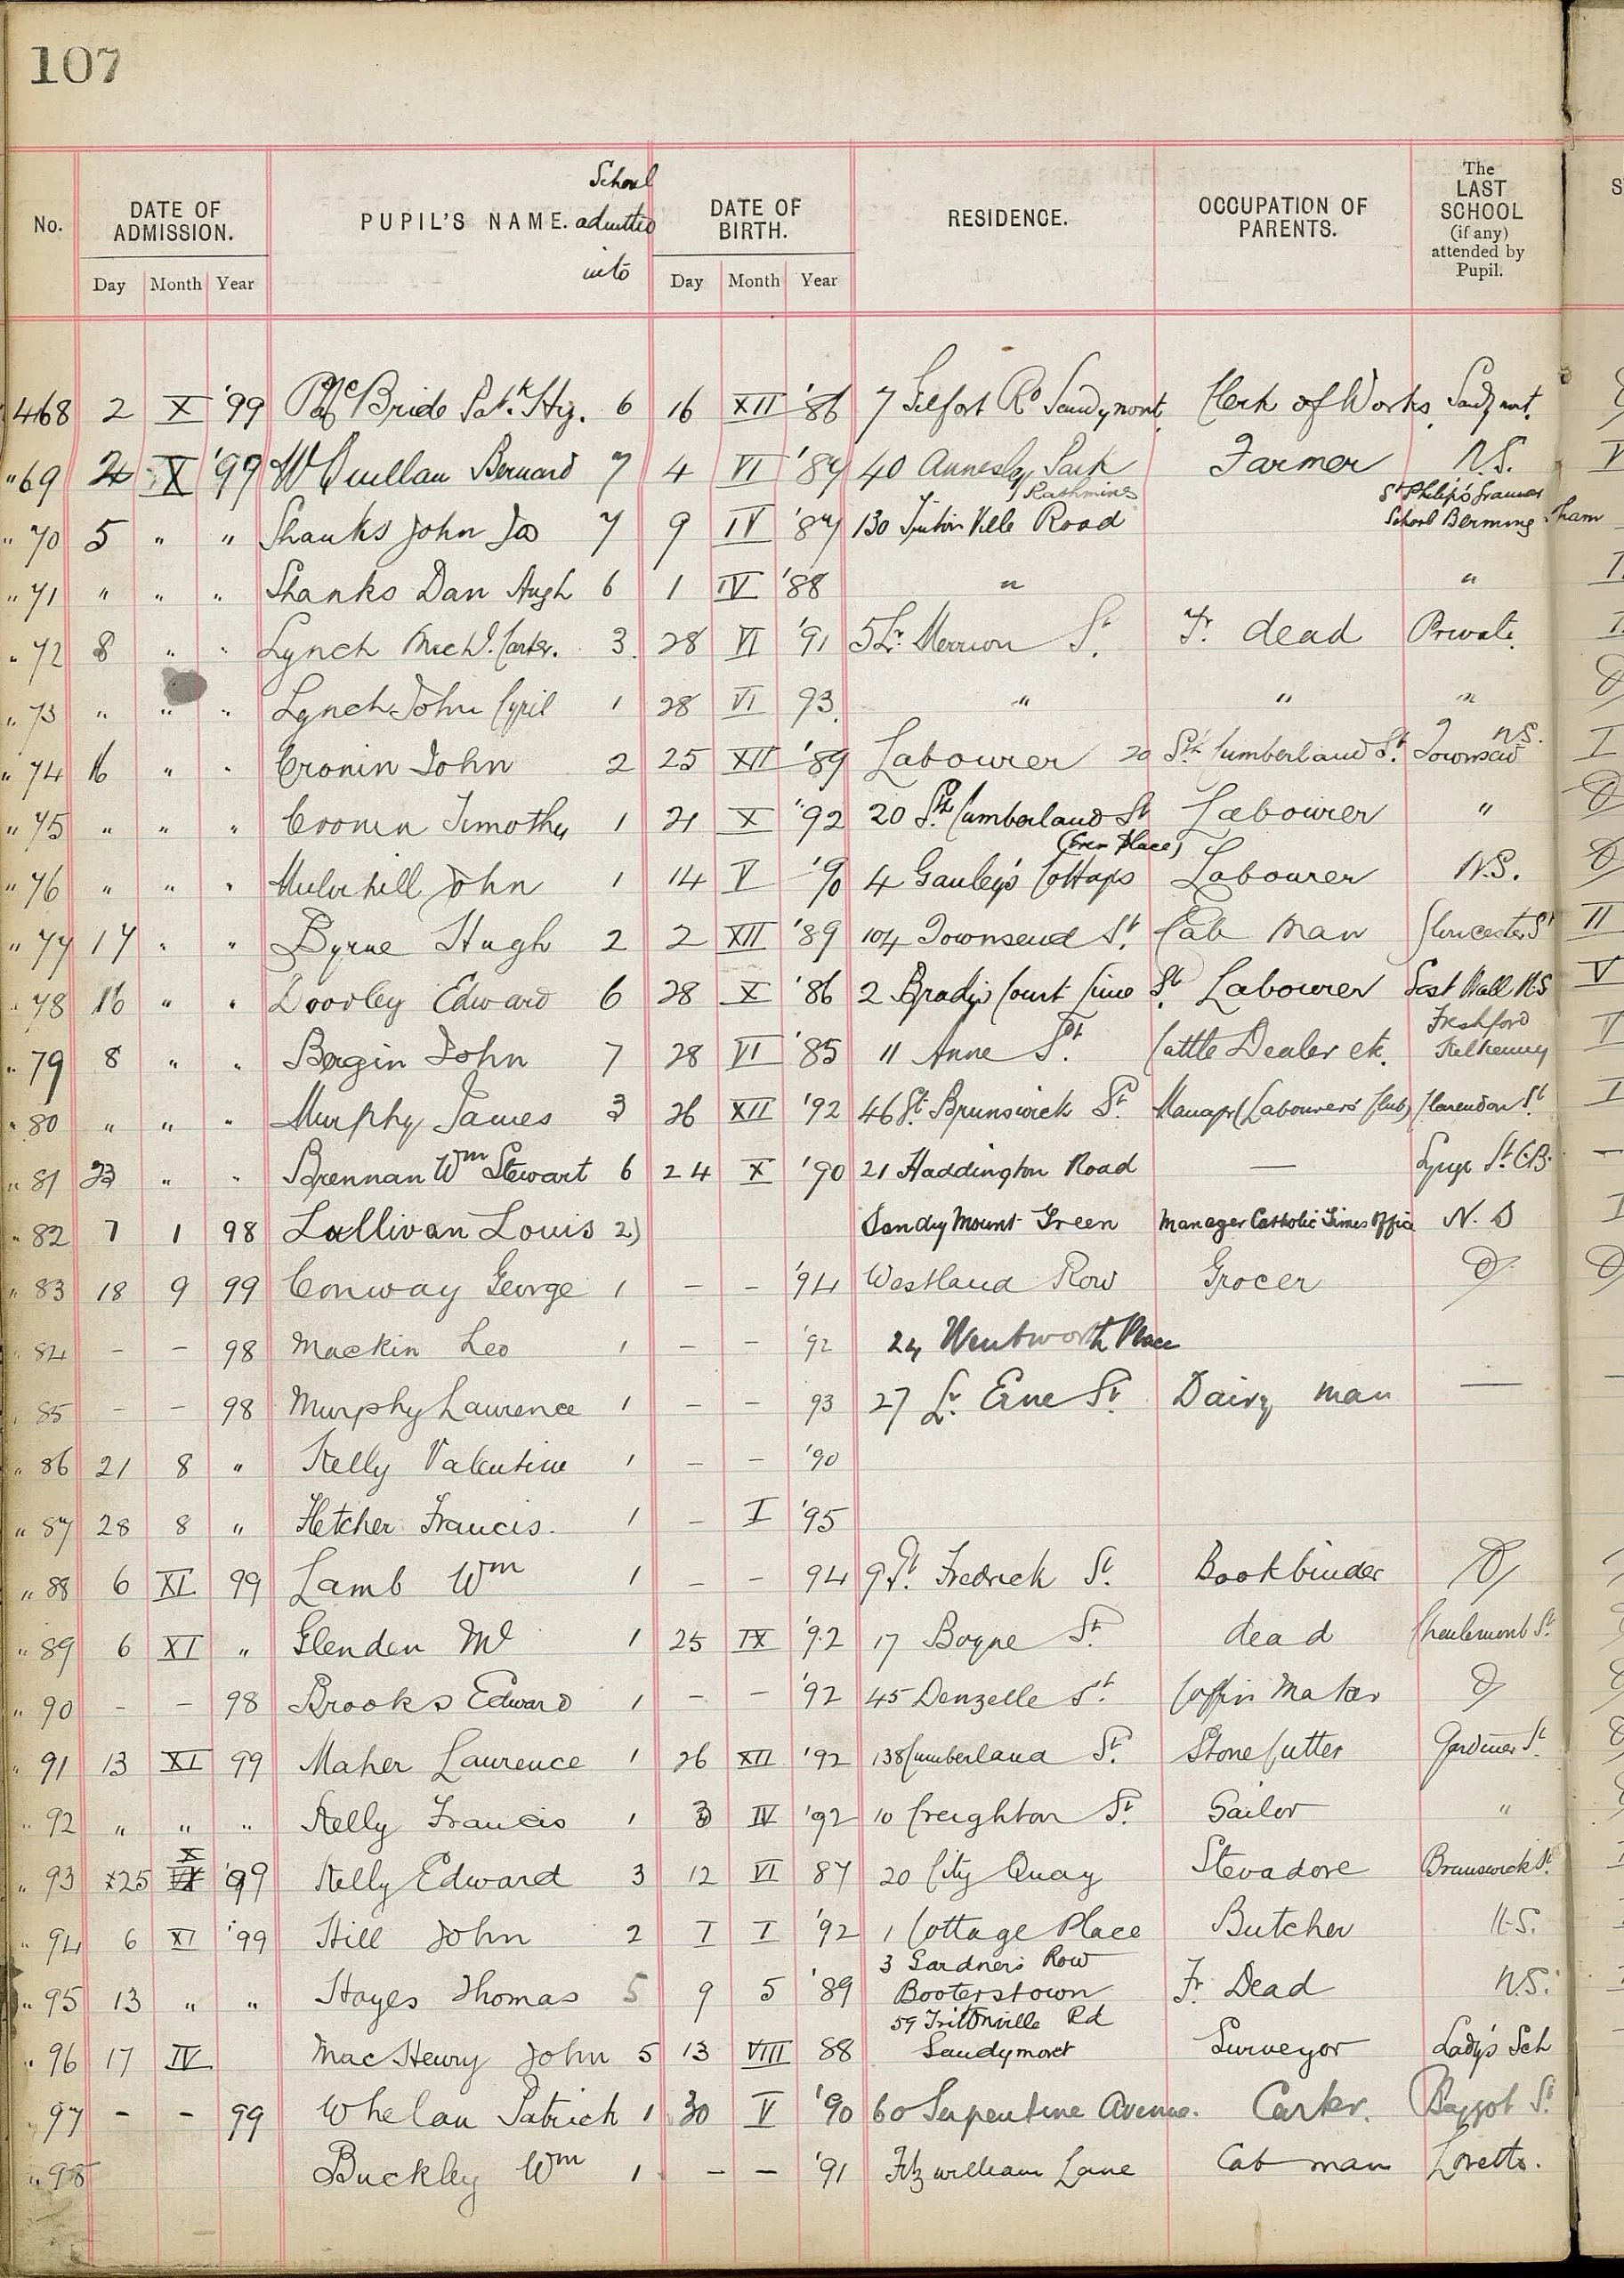 107
School
No. DATE OF ADMISSION. PUPIL'S NAME. admitted into DATE OF BIRTH. RESIDENCE. OCCUPATION OF PARENTS. The LAST SCHOOL (if any) attended by Pupil.
Day Month Year Day Month Year
468 2 X '99 McBride Patk. Hy. 6 16 XII '86 7 Rd Sandymont Clerk of Works Sandymt.
"69 2 X '99 McQuillan Bernard 7 4 VI '87 40 Annesley Park Rathmines Farmer N.S.
"70 5 " " Shanks John Jos 7 9 IV '87 130 Tritonville Road St Philip's Grammar School Berming-ham
"71 " " " Shanks Dan Hugh 6 1 IV '88 " "
"72 8 " " Lynch Michl. Carter. 3 28 VI '91 5 Lr. Merrion St. Fr. dead Private.
"73 " " " Lynch John Cyril 1 28 VI 93 " " "
"74 16 " " Cronin John 2 25 XII '89 Labourer 20 Sth Cumberland St. Townsend N.S.
"75 " " " Cronin Timothy 1 21 X '92 20 Sth Cumberland St Labourer "
(Erne Place)
"76 " " " Mulvihill John 1 14 V '90 4 Gauley's Cottages Labourer N.S.
"77 17 " " Byrne Hugh 2 2 XII '89 104 Townsend St. Cab Man Gloucester St II
"78 16 " " Doorley Edward 6 28 X '86 2 Brady's Court Lime St. Labourer East Wall N.S V
"79 8 " " Bergin John 7 28 VI '85 11 Anne St. Cattle Dealer etc. Freshford Kilkenny
"80 " " " Murphy James 3 26 XII '92 46 Gt. Brunswick St. Manager (Labourers' Club) Clarendon St.
"81 23 " " Brennan Wm Stewart 6 24 X '90 21 Haddington Road — Synge St. C.B.
"82 7 1 98 Lullivan Louis 2) Sandy Mount Green Manager Catholic Times Office N. S
"83 18 9 99 Conway George 1 – – '94 Westland Row Grocer
"84 – – 98 Mackin Leo 1 – – '92 24 Wentworth Place
"85 – – 98 Murphy Laurence 1 – – 93 27 Lr. Erne St. Dairy man —
"86 21 8 " Kelly Valentine 1 – – '90
"87 28 8 " Fletcher Francis. 1 – I '95
"88 6 XI 99 Lamb Wm 1 – – 94 9 St. Fredrick St. Bookbinder
"89 6 XI " Glenden Ml 1 25 IX '92 17 Boyne St. dead St.
"90 – – 98 Brooks Edward 1 – – '92 45 Denzelle St. Coffin Maker
"91 13 XI 99 Maher Laurence 1 26 XII '92 138 Cumberland St. Stone Cutter Gardiner St.
"92 " " " Kelly Francis 1 3 IV '92 10 Creighton St. Sailor "
"93 25 X '99 Kelly Edward 3 12 VI 87 20 City Quay Stevadore Brunswick St.
"94 6 XI '99 Hill John 2 I I '92 1 Cottage Place Butcher N.S.
"95 13 " " Hayes Thomas 5 9 5 '89 3 Gardners Row Booterstown Fr. Dead N.S.
"96 17 IV Mac Henry John 5 13 VIII 88 59 Tritonville Rd Sandymont Surveyor Lady's Sch
"97 – – 99 Whelan Patrick 1 30 V '90 60 Serpentine Avenue. Carter. Baggot St.
"98 Buckley Wm 1 – – '91 Fitzwilliam Lane Cab man Loretto.